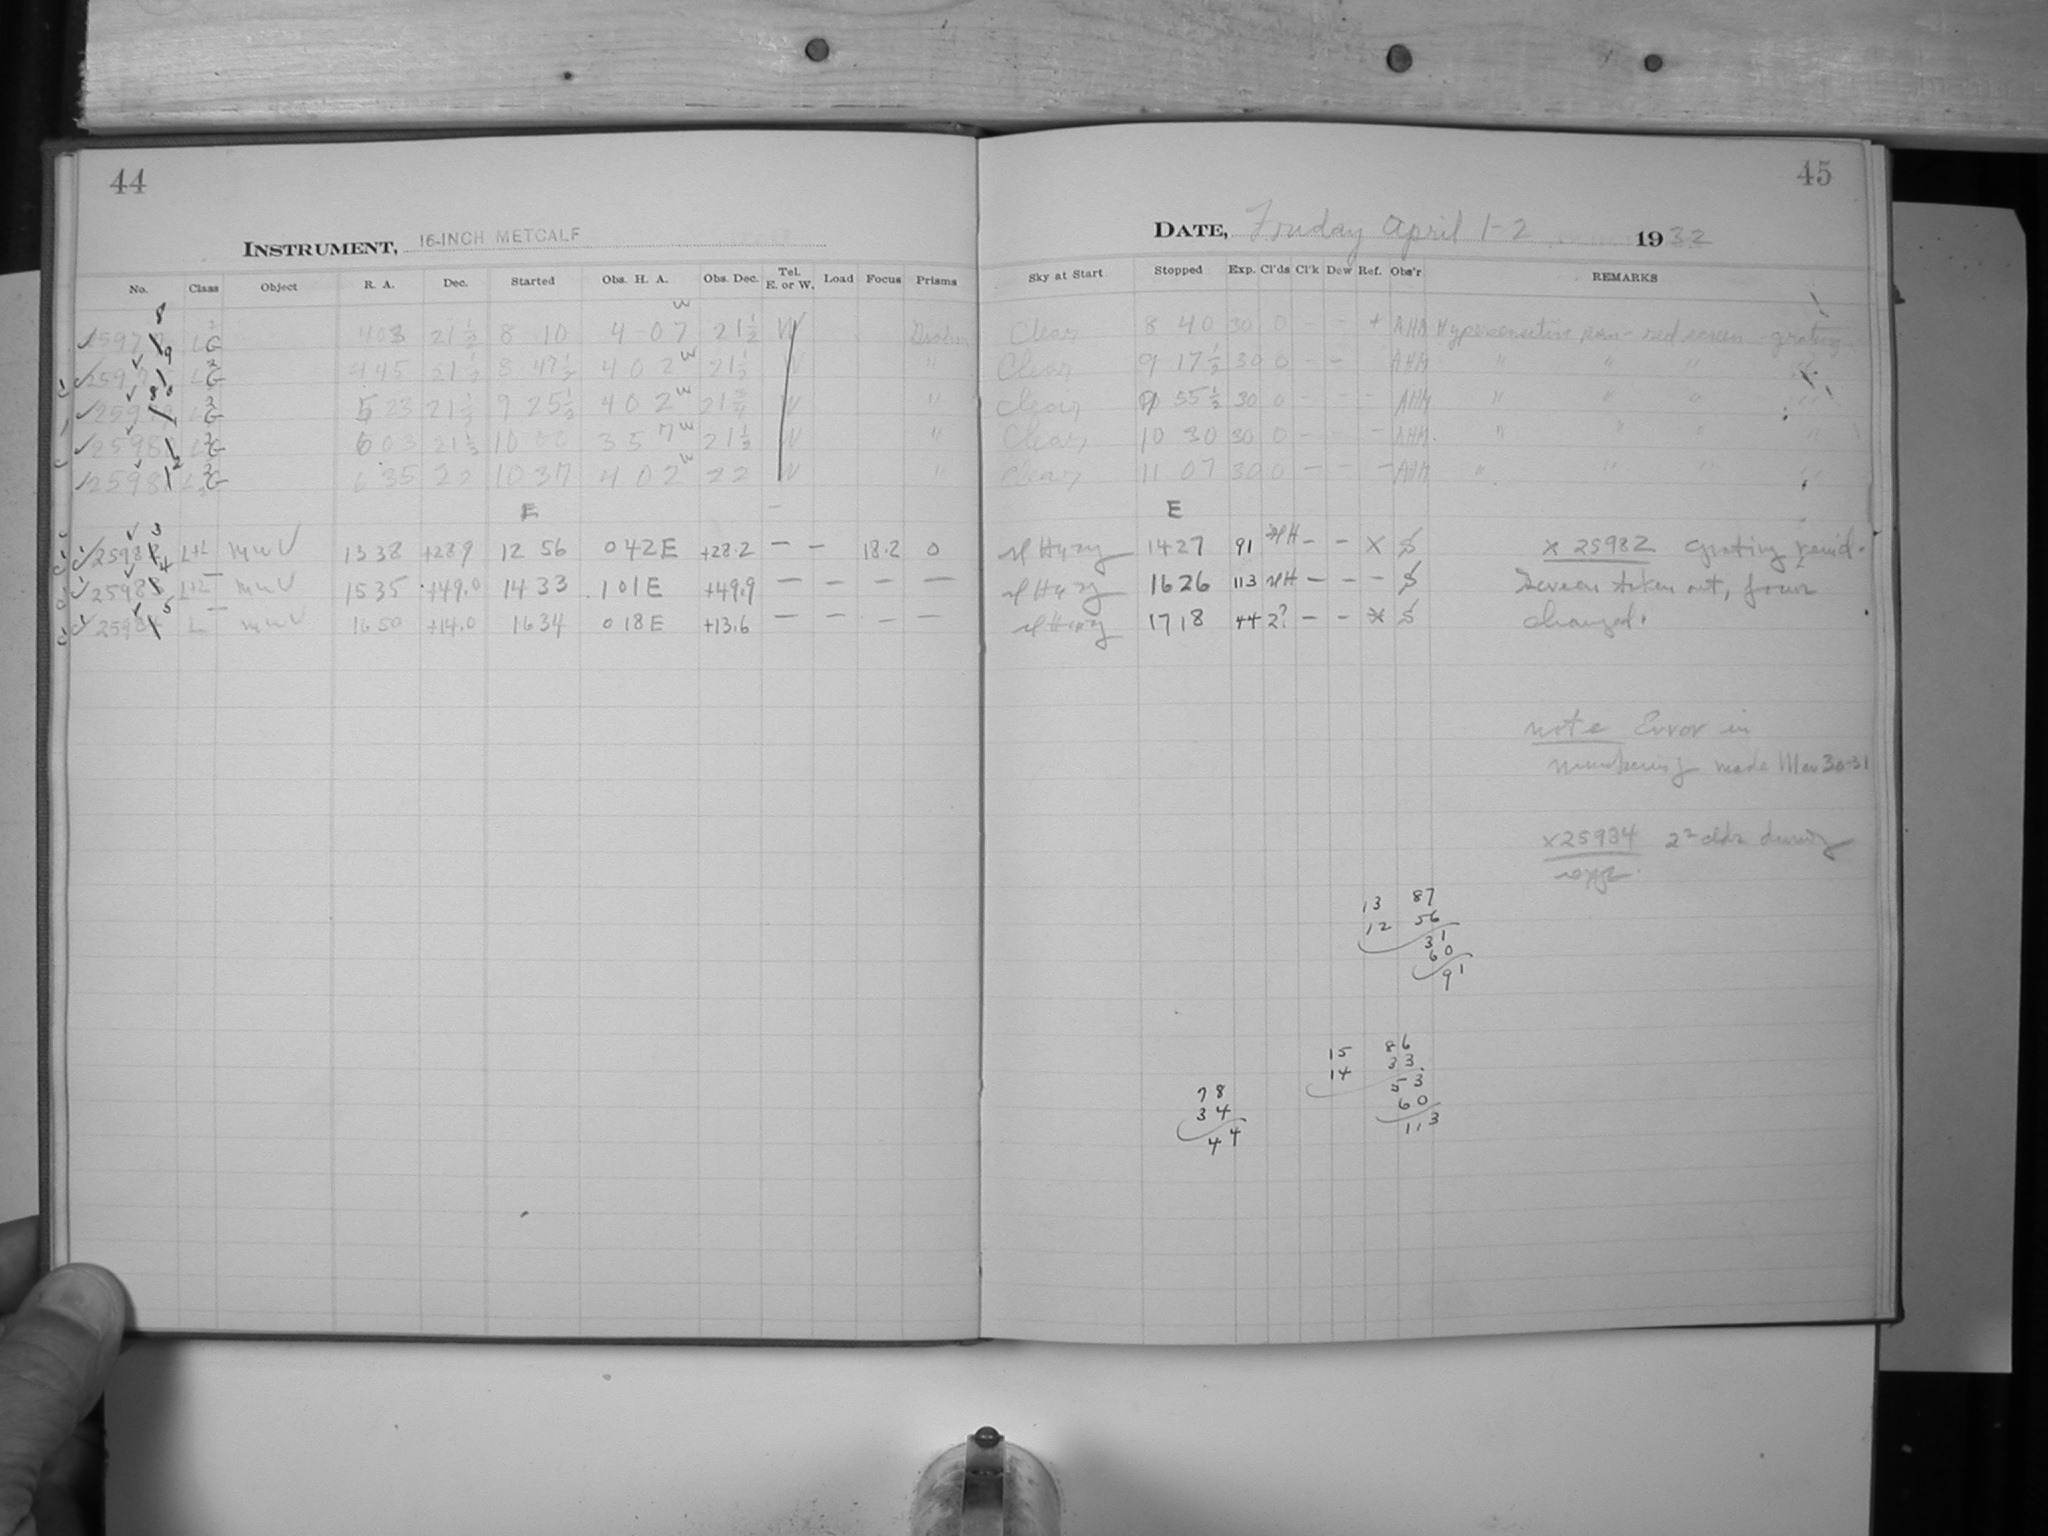 44
INSTRUMENT, 16-INCH METCALF
No. Class Object R. A. Dec. Started Obs. H. A. Obs. Dec. Tel. E. or W. Load Focus Prisms
8 10 4 07 W 21½ W
9
4 45 21½ 8 47½ 4 02 W 21½ W "
80
5 23 21½ 9 25½ 4 02 W W "
6 03 21½ 10 00 3 57 W 21½ W "
6 35 22 10 37 4 02 W 22 W "
E
3
L+L 13 38 +28.9 12 56 0 42 E +28.2 — — 18.2 0
4
L+L 15 35 +49.0 14 33 1 01 E +49.9 — — — —
5
L 16 50 +14.0 16 34 0 18 E +13.6 — — — —
45
DATE, Friday April 1-2 1932
Sky at Start Stopped Exp. Cl'ds Cl'k Dew Ref. Obs'r REMARKS
Clear 8 40 30 0 - - + AHM Hypersensitive pan- red screen - grating
Clear 9 17½ 30 0 - - AHM " " " "
Clear 55½ 30 0 - - - AHM " " " "
Clear 10 30 30 0 - - - AHM. " " " "
Clear 11 07 30 0 - - - AHM " " " "
E
sl Hazy 14 27 91 sl H - - X S x 25982 Grating
sl Hazy 16 26 113 sl H - - - S Screen taken out, focus
sl Hazy 17 18 44 2? - - X S changed.
note Error in
numbering made Mar 30-31
x 25984 during
expos.
13 87
12 56
31
60
91
15 86
14 33
53
60
113
78
34
44